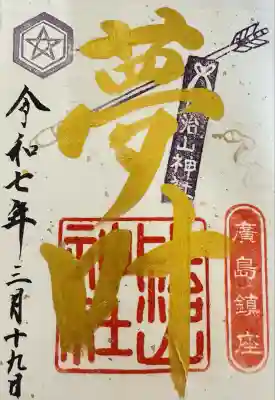 廣島鎮座
比治山神社
夢叶
比治山神社
令和七年三月十九日